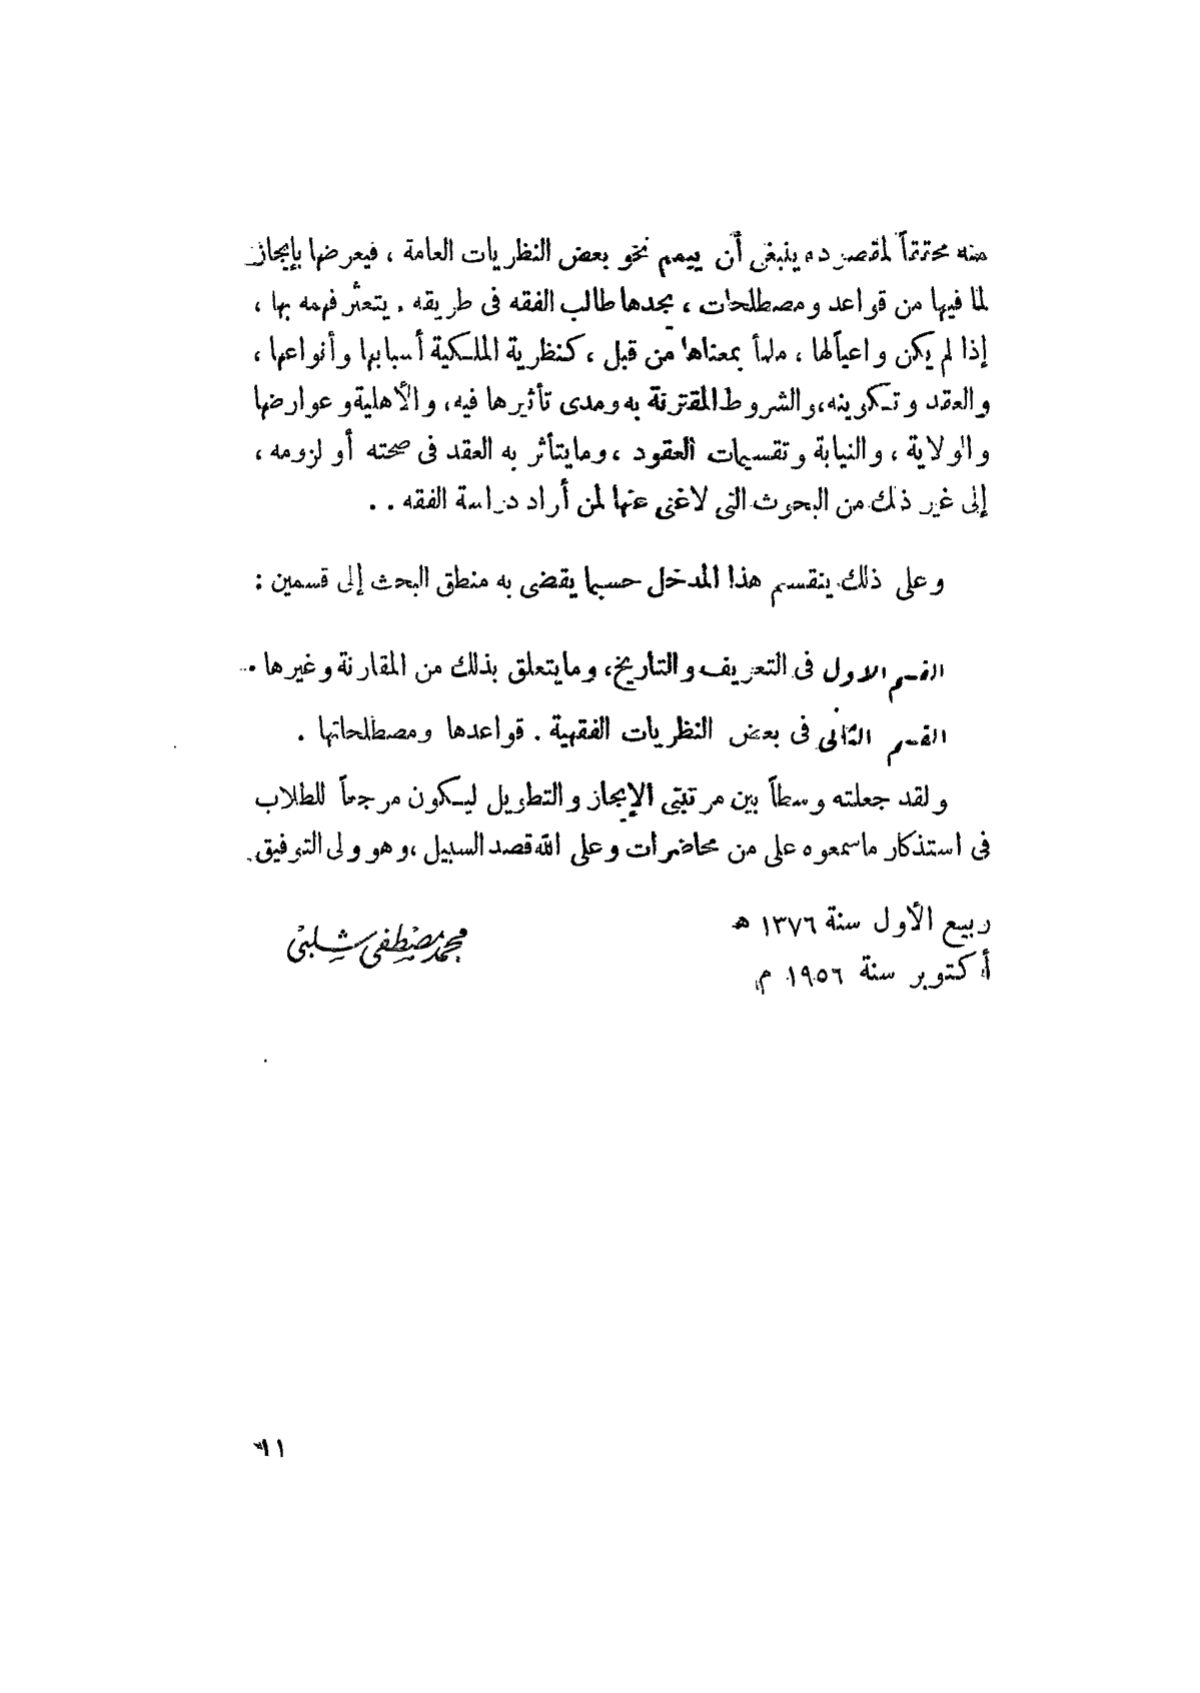 منه محققاً لمقصوده ينبغى أن ييمم نحو بعض النظريات العامة ، فيعرضها بإيجاز
لما فيها من قواعد ومصطلحات ، يجدها طالب الفقه فى طريقه . يتعثر فهمه بها ،
إذا لم يكن واعياً لها ، ملماً بمعناها من قبل ، كنظرية الملكية أسبابها وأنواعها ،
والعقد وتكوينه، والشروط المقترنة به ومدى تأثيرها فيه، والأهلية وعوارضها
والولاية ، والنيابة وتقسيمات العقود ، ومايتأثر به العقد فى صحته أو لزومه ،
إلى غير ذلك من البحوث التى لاغنى عنها لمن أراد دراسة الفقه . .
وعلى ذلك ينقسم هذا المدخل حسبما يقضى به منطق البحث إلى قسمين :
القسم الاول فى التعريف والتاريخ، ومايتعلق بذلك من المقارنة وغيرها .
القسم الثانى فى بعض النظريات الفقهية . قواعدها ومصطلحاتها .
ولقد جعلته وسطاً بين مرتبتى الإيجاز والتطويل ليكون مرجعاً للطلاب
فى استذكار ماسمعوه على من محاضرات وعلى الله قصد السبيل ،وهو ولى التوفيق.
ربيع الأول سنة ١٣٧٦ هـ
أكتوبر سنة ١٩٥٦ م
محمد مصطفى شلبى
١١